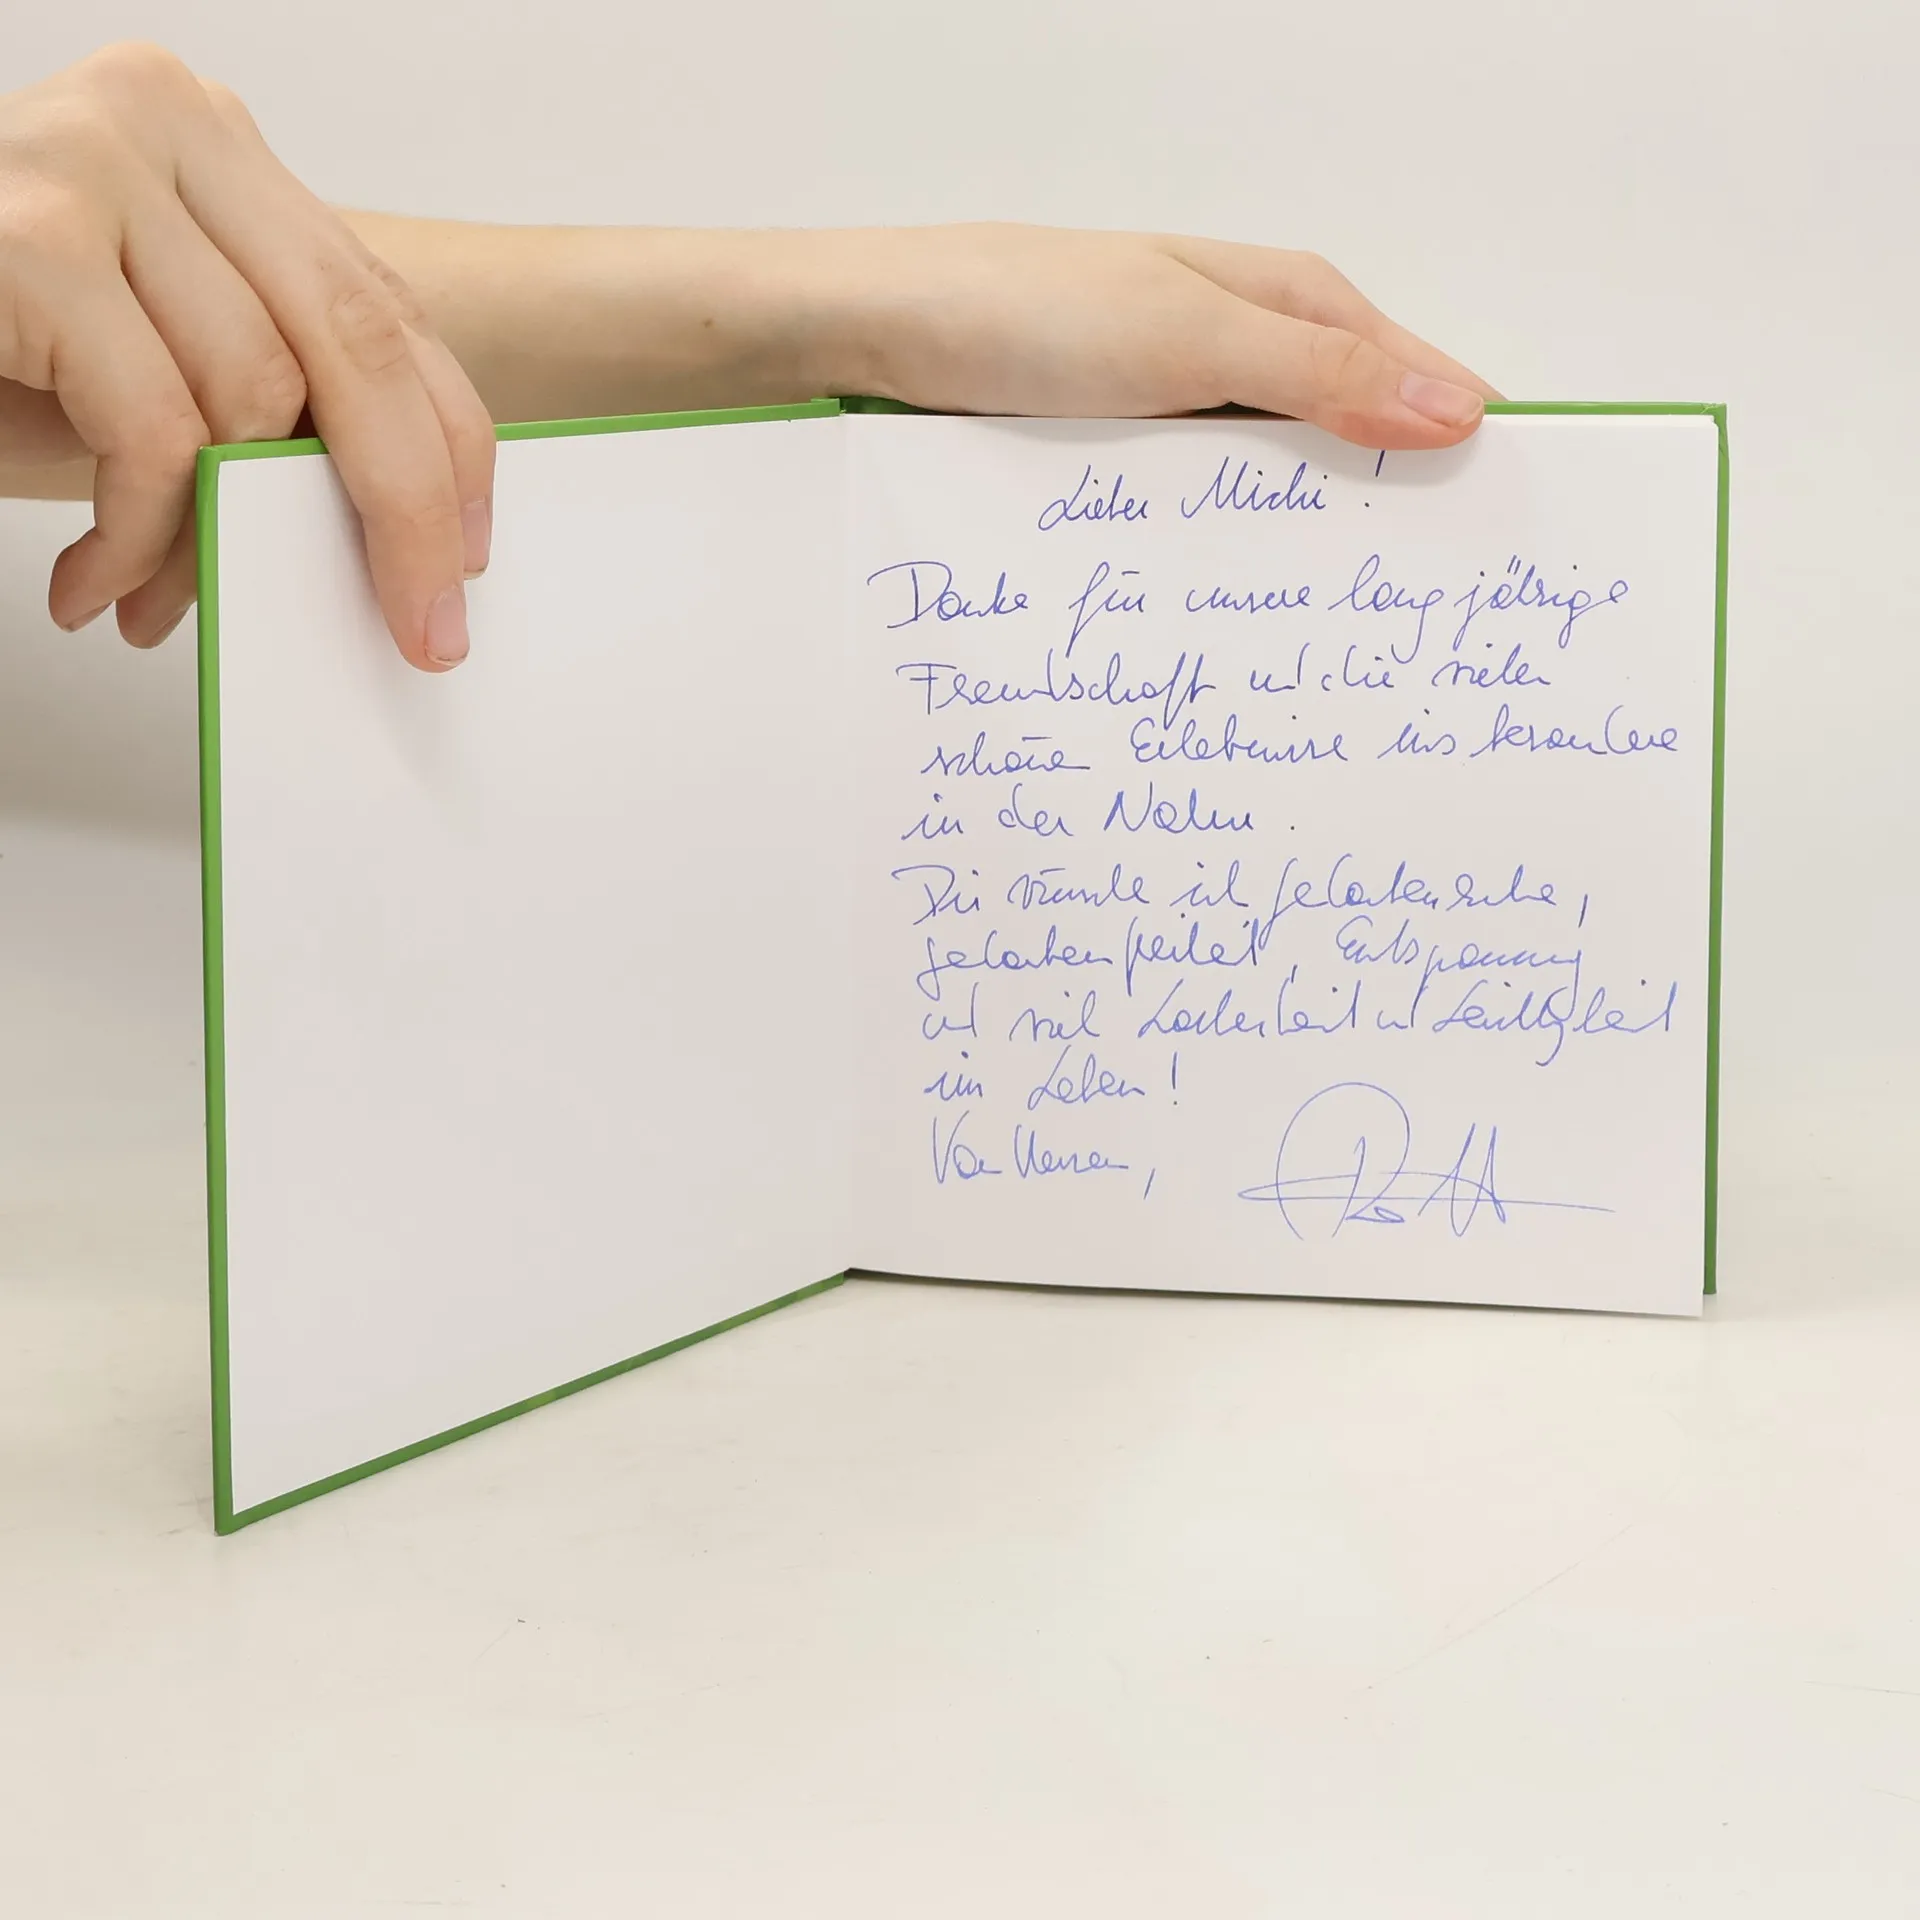 Lieber Michi!
Danke für unsere langjährige
Freundschaft und die vielen
schönen Erlebnisse insbesondere
in der Natur.
Dir wünsche ich Gedankenruhe,
Gedankenfreiheit, Entspannung
und viel Lockerheit und Leichtigkeit
im Leben!
Von Herzen,